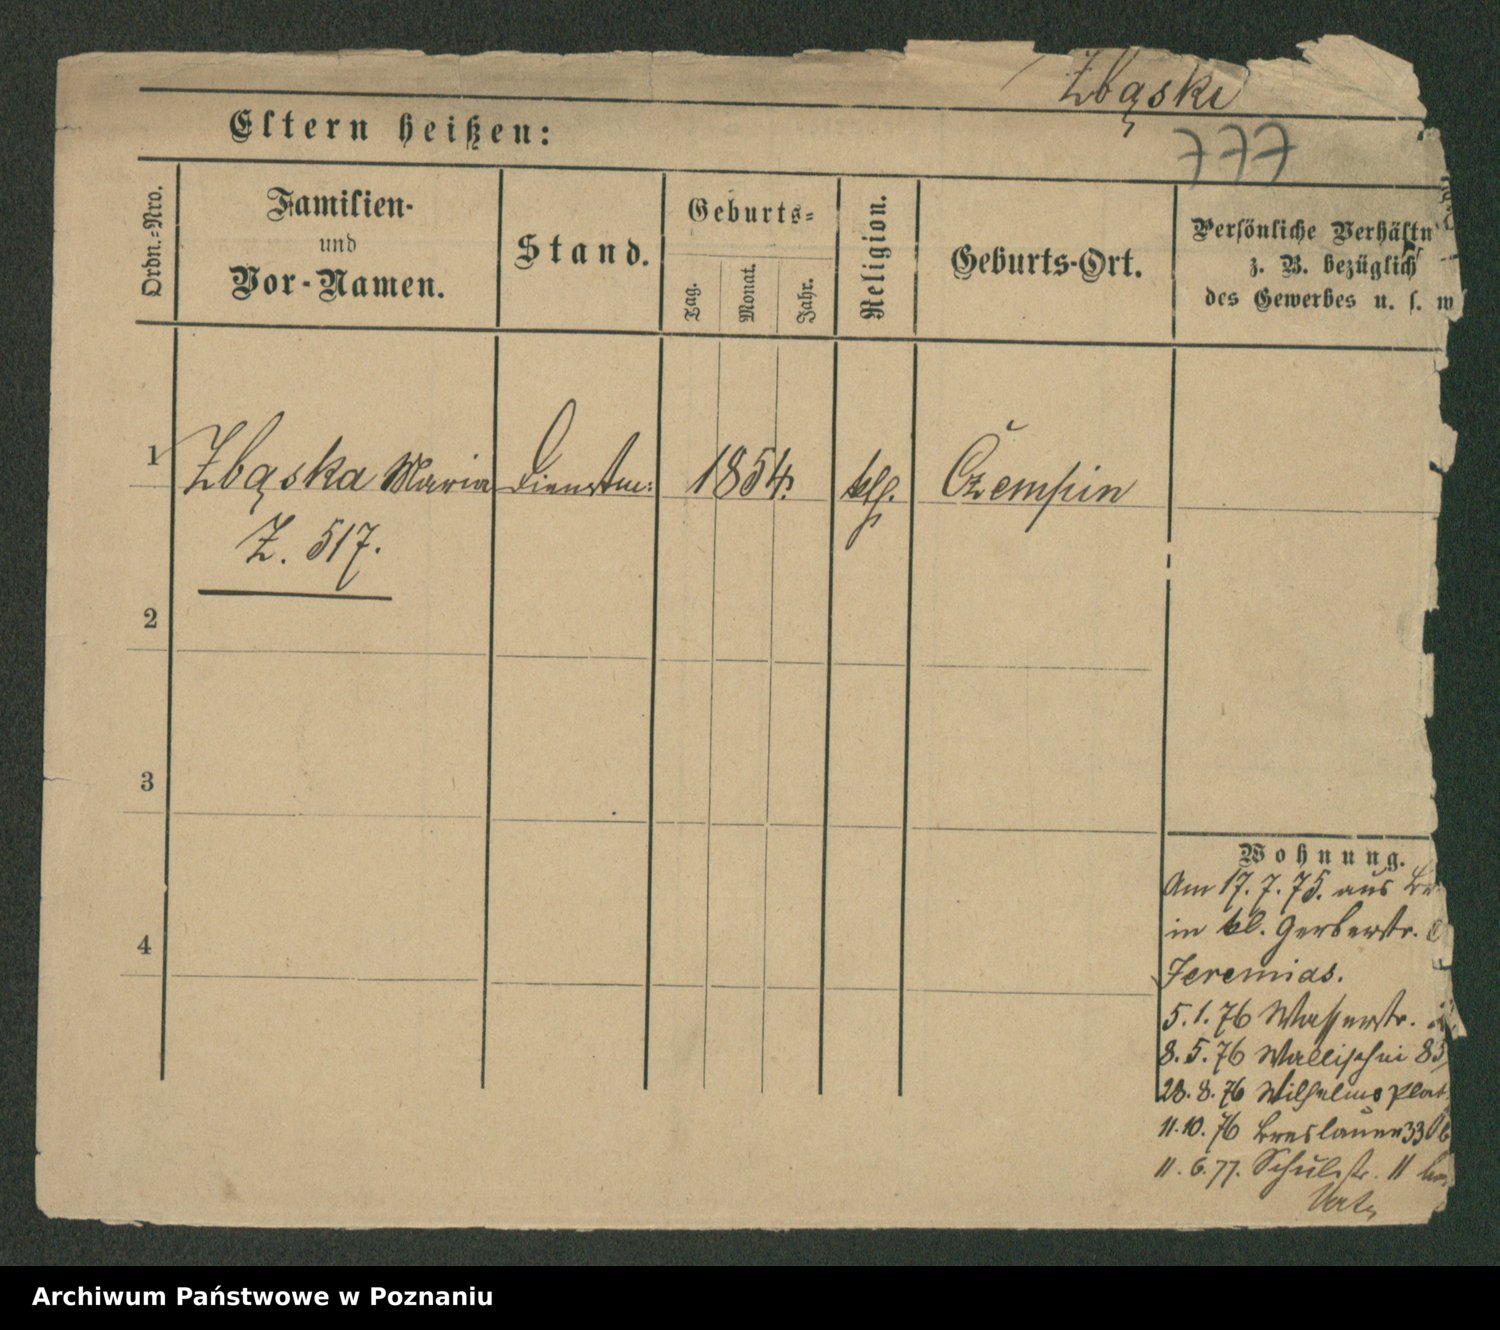 Zbąski
777
Eltern heißen:
Ordn.-Nro.
Familien-
und
Vor-Namen.
Stand.
Geburts-
Tag.
Monat.
Jahr.
Religion.
Geburts-Ort.
Persönliche Verhältn
z. B. bezüglich
des Gewerbes u. s. w
1 Zbąska Maria Dienstm: 1854. kth. Czempin
Z. 517.
2
3
4
Wohnung.
Am 17. 7. 75. aus
in kl. Gerberstr.
Jeremias.
5. 1. 76 Wasserstr.
8. 5. 76 Wallischei 85
28. 8. 76 Wilhelms Plat
11. 10. 76 Breslauer 33
11. 6. 77. Schulstr. 11
Archiwum Państwowe w Poznaniu